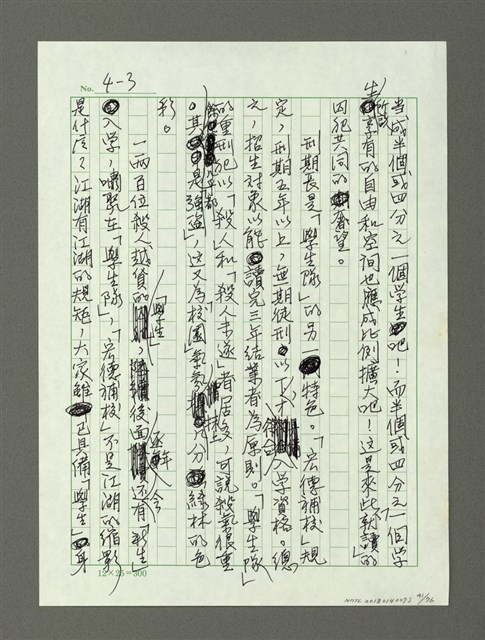 No. 4-3
當成半個或四分之一個學生吧！而半個或四分之一個學
生所享有的自由和空間也應成比例擴大吧！這是來此就讀的
囚犯共同的奢望。
刑期長是「學生隊」的另一特色。「宏德補校」規
定，刑期五年以上，無期徒刑以下，才符合入學資格。總
之，招生對象以能讀完三年結業者為原則。「學生隊」
的重刑犯以「殺人和「殺人未遂」者居多，可說殺氣很重
。其餘是強盜，這又為校園氣氛上几分綠林的色
彩。
一兩百位殺人越貨的「學生」，後面還有「新生」
入学，嘯聚在「學生隊」，「宏德補校」不是江湖的縮影
是什么？江湖有江湖的規矩，大家雖已具備「學生」身
12×25=300
NMTL 20180140093 41/76